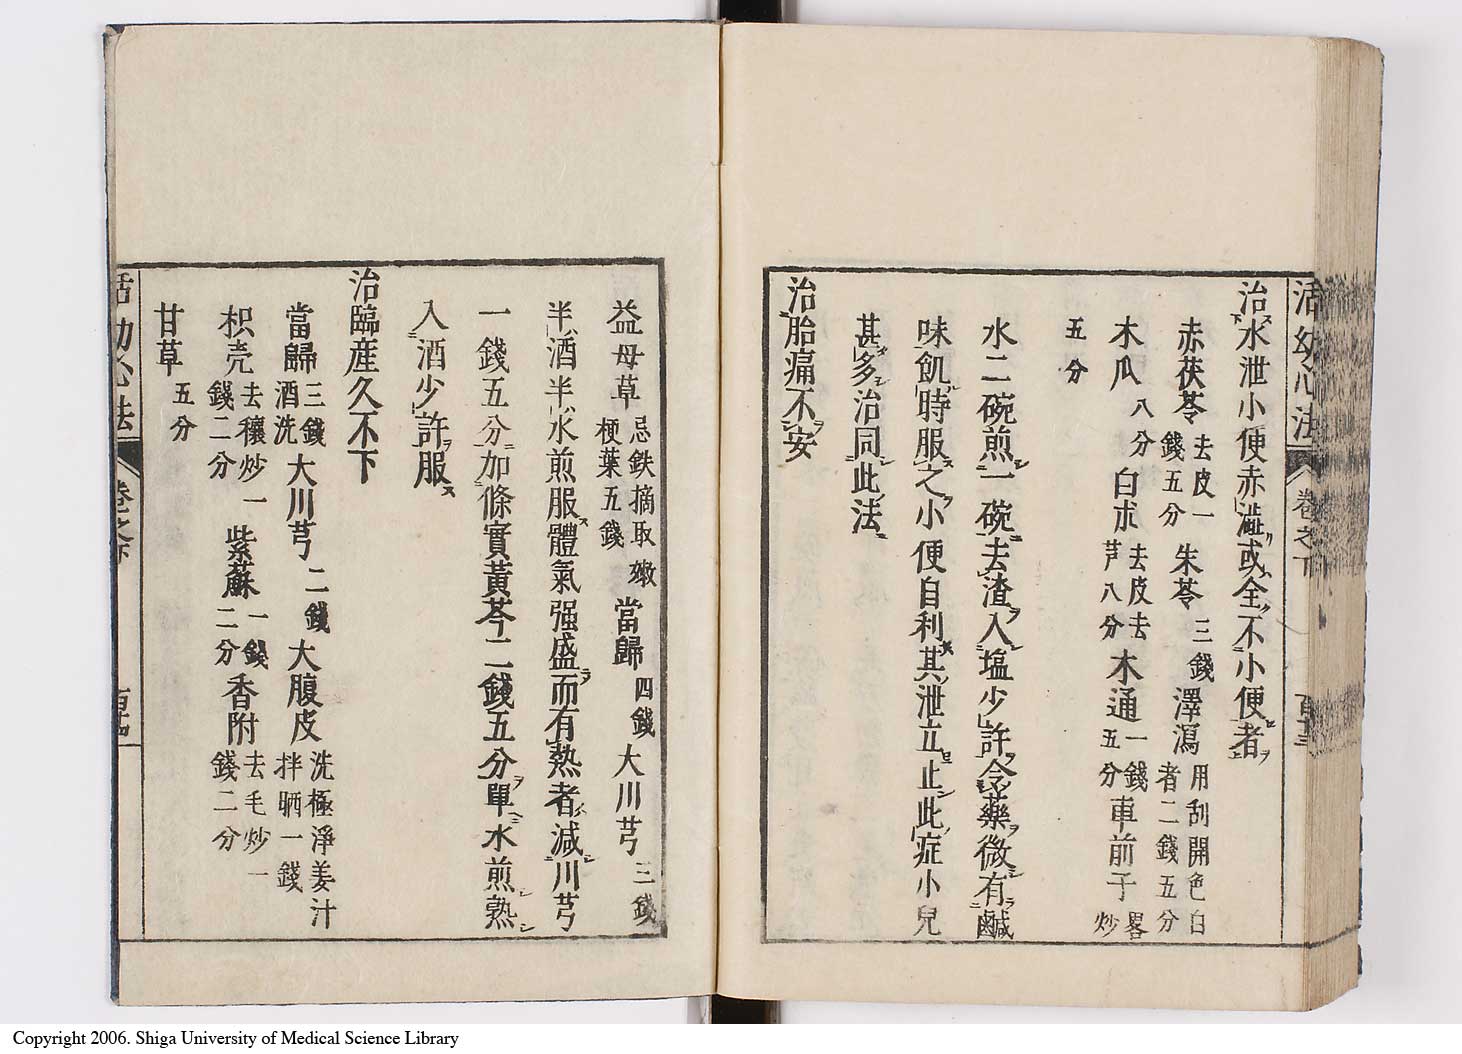 活幼心法 卷之下
治水泄小便赤澁或全不小便者
赤茯苓去皮一錢五分朱苓三錢澤瀉用刮開色白者二錢五分
木瓜八分白朮去皮去芦八分木通一錢五分車前子畧炒
五分
水二碗煎一碗去渣入塩少許令藥微有鹹
味飢時服之小便自利其泄立止此症小兒
甚多治同此法
治胎痛不安
益母草忌鉄摘取嫩梗葉五錢當歸四錢大川芎三錢
半酒半水煎服體氣强盛而有熱者減川芎
一錢五分加條實黃芩二錢五分單水煎熟
入酒少許服
治臨産久不下
當歸三錢酒洗大川芎二錢大腹皮洗極淨姜汁拌晒一錢
枳壳去穰炒一錢二分紫蘇一錢二分香附去毛炒一錢二分
甘草五分
活幼心法 卷之下
Copyright 2006. Shiga University of Medical Science Library